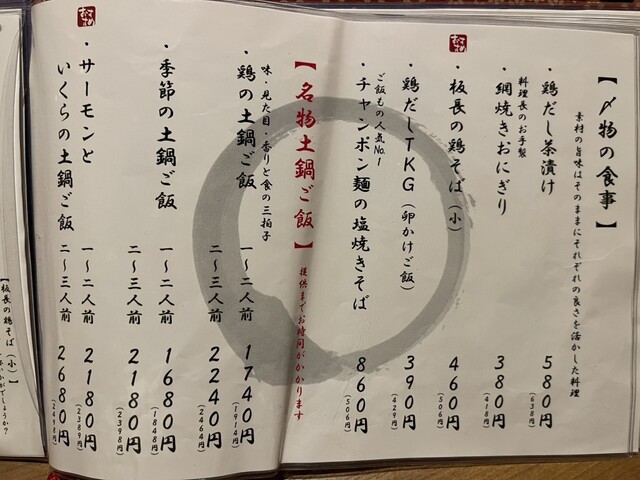 【〆物の食事】
素材の旨味はそのままにそれぞれの良さを活かした料理
・鶏だし茶漬け 580円
(638円)
料理長のお手製
・網焼きおにぎり 380円
(418円)
おすすめ
・板長の鶏そば（小） 460円
(506円)
・鶏だしTKG（卵かけご飯） 390円
(429円)
ご飯もの人気No.1
・チャンポン麺の塩焼きそば 860円
(506円)
【名物土鍋ご飯】提供までお時間がかかります
味・見た目・香りと食の三拍子
・鶏の土鍋ご飯 一～二人前 1740円
(1914円)
二～三人前 2240円
(2464円)
・季節の土鍋ご飯 一～二人前 1680円
(1848円)
二～三人前 2180円
(2398円)
おすすめ
・サーモンと
いくらの土鍋ご飯 一～二人前 2180円
(2389円)
二～三人前 2680円
(2498円)
【板長の鶏そば（小）】
いかがでしょうか？